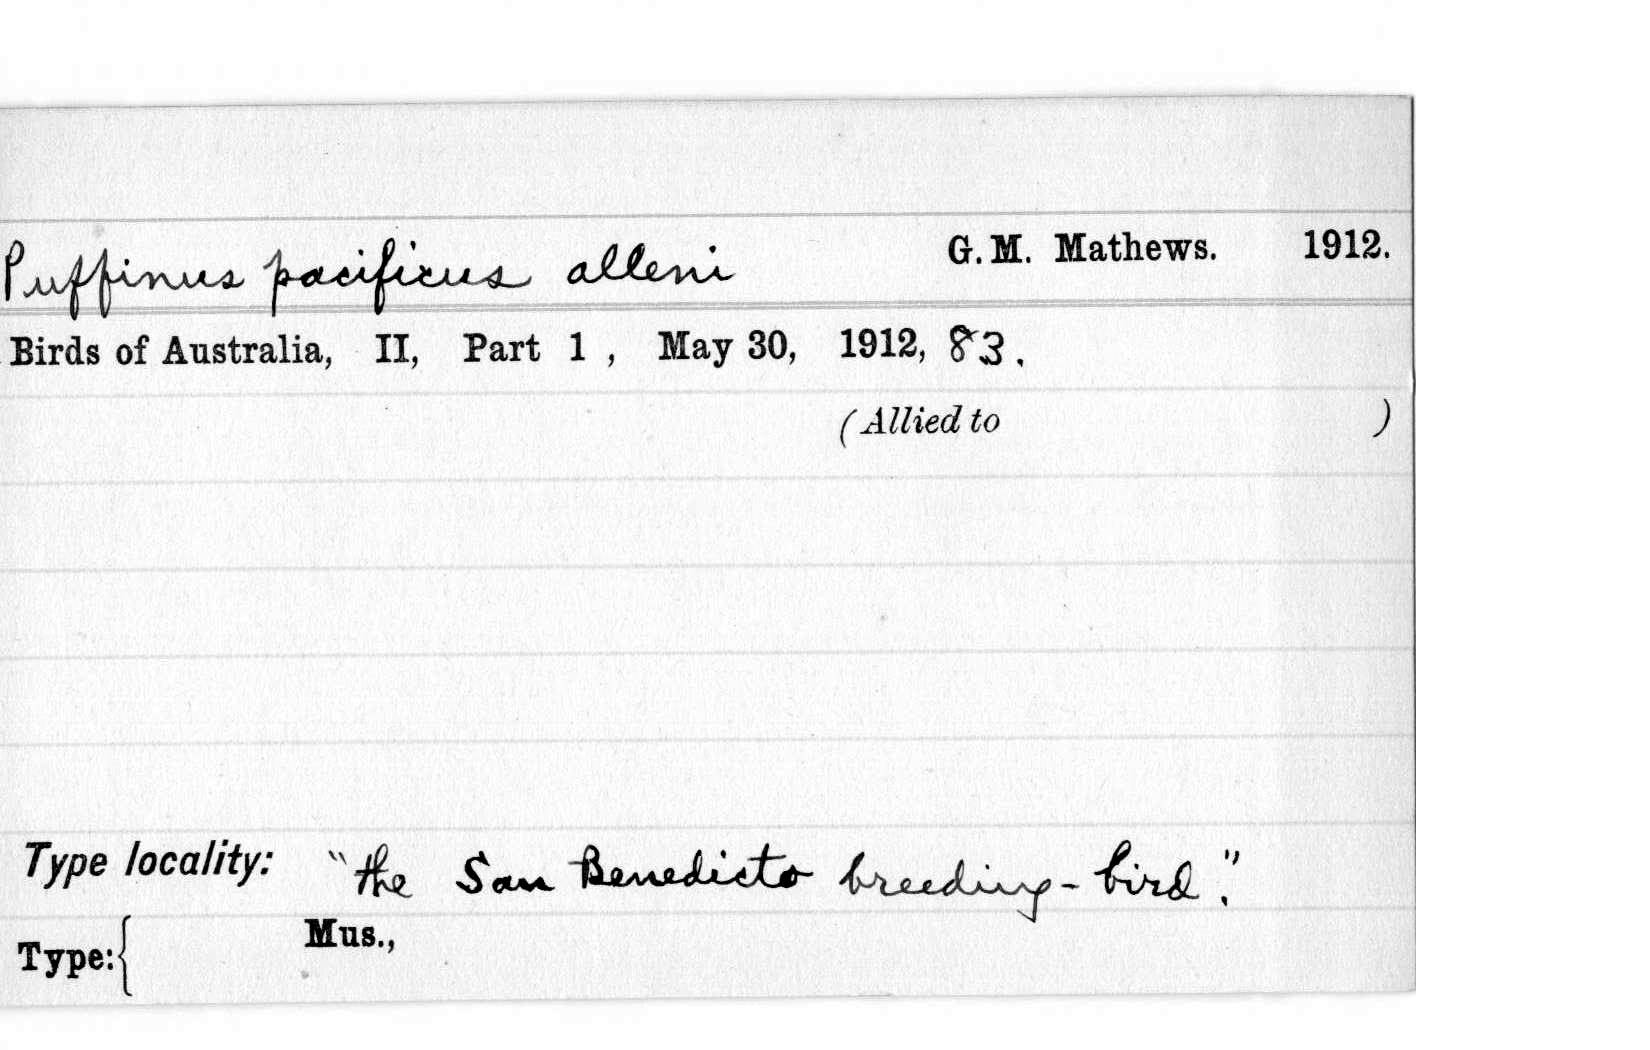 Puffinus pacificus alleni G. M. Mathews. 1912.
Birds of Australia, II, Part 1 , May 30, 1912, 83.
(Allied to )
Type locality: "the San Benedicto breeding-bird."
Type:{ Mus.,